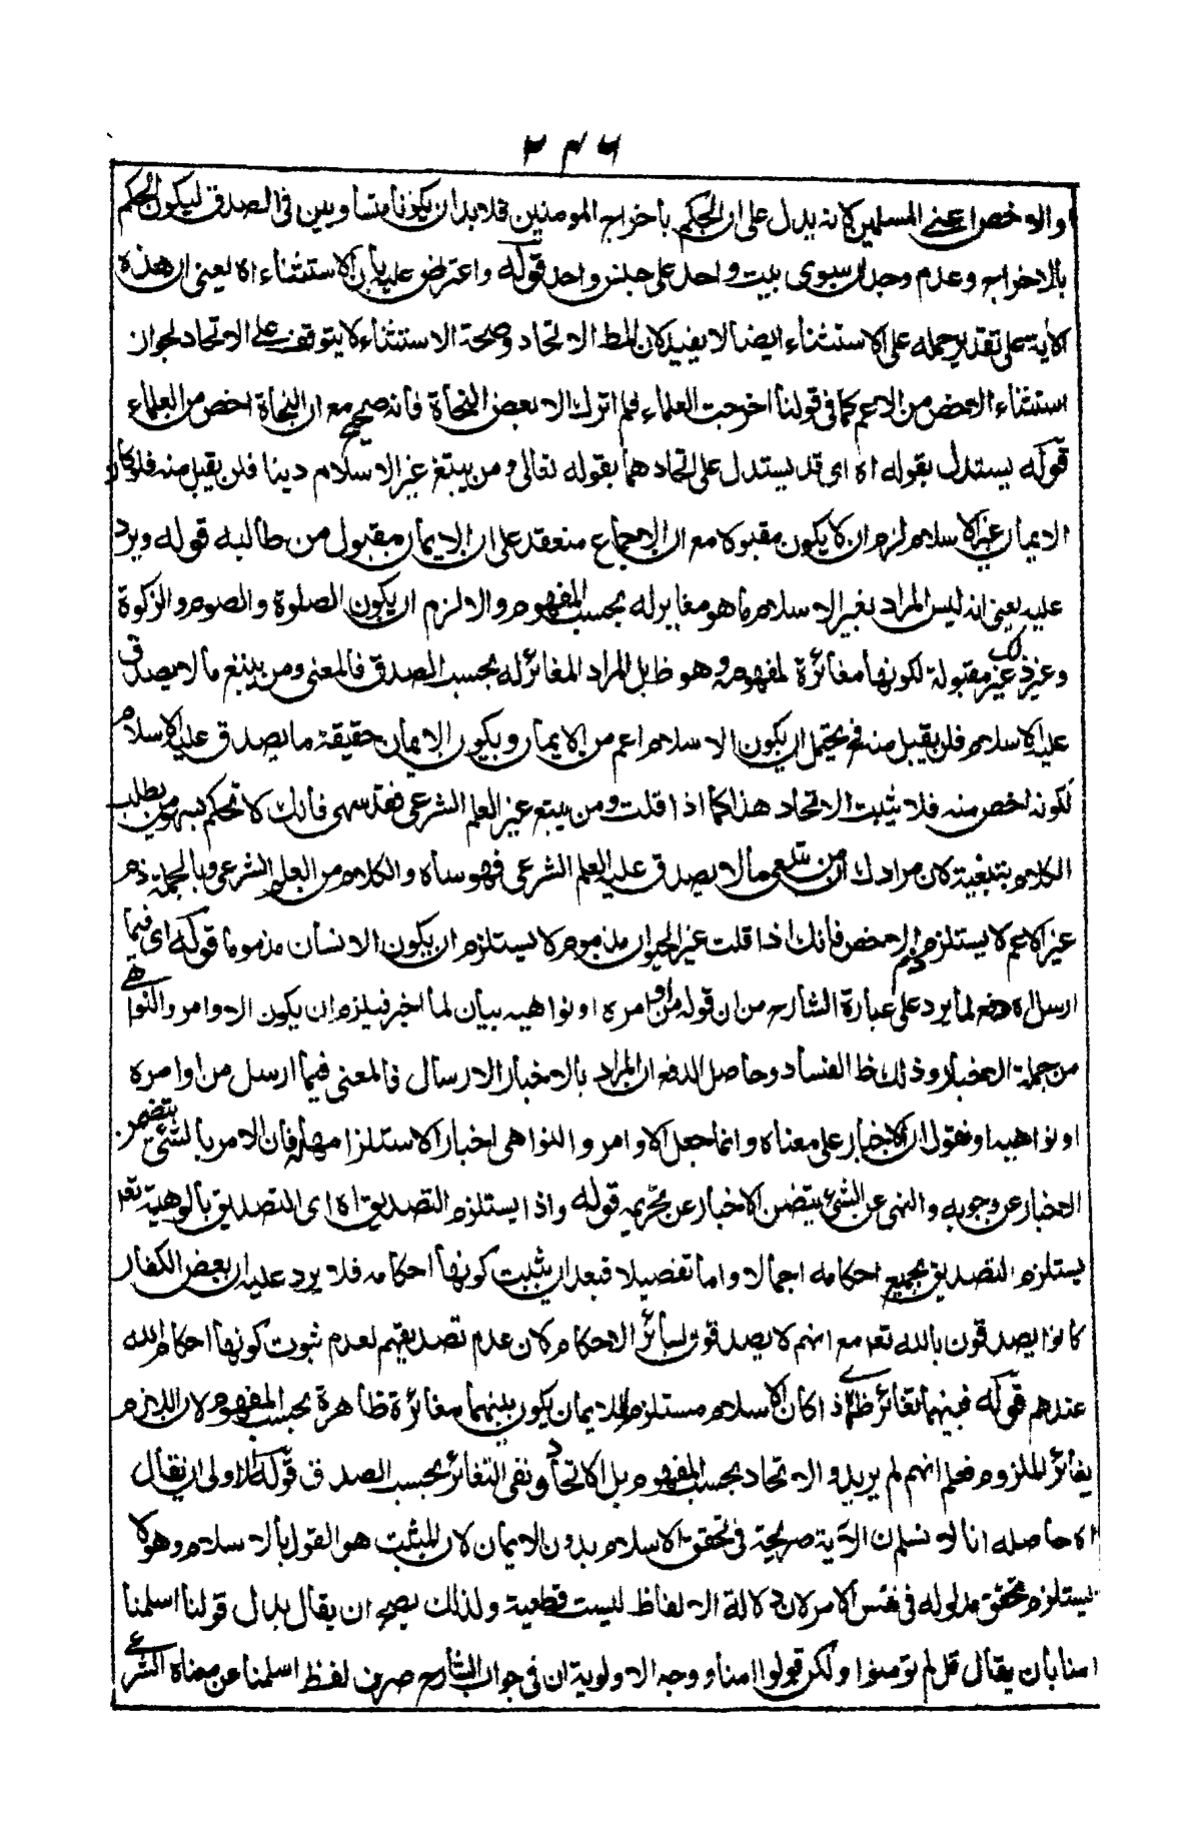 ٢٤٦
والاخص اعنى المسلمين لانه يدل على ان الحكم باخراج المومنين فلابد ان يكونا متساويين فى الصدق ليكون الحكم
بالاخراج وعدم وجدان سوى بيت واحد على جنس واحد قوله واعترض عليه بان الاستثناء اه يعنى ان هذه
الاية على تقدير حمله على الاستثناء ايضا لا يفيد لان المط الاتحاد وصحة الاستثناء لا يتوقف على الاتحاد لجواز
استثناء الاخص من الاعم كما فى قولنا اخرجت العلماء فلم اترك الا بعض النحاة فانه صحيح مع ان النحاة اخص من العلماء
قوله يستدل بقوله اه اى قد يستدل على اتحادهما بقوله تعالى ومن يبتغ غير الاسلام دينا فلن يقبل منه فلو كان
الايمان غير الاسلام لزم ان لا يكون مقبولا مع ان الاجماع منعقد على ان الايمان مقبول من طالبه قوله ويرد
عليه يعنى انه ليس المراد بغير الاسلام ما هو مغاير له بحسب المفهوم والا لزم ان يكون الصلوة والصوم والزكوة
وغير ذلك غير مقبولة لكونها مغائرة لمفهومه وهو ظ بل المراد المغائر له بحسب الصدق فالمعنى ومن يبتغ ما لا يصدق
عليه الاسلام فلن يقبل منه فح يحتمل ان يكون الاسلام اعم من الايمان ويكون الايمان حقيقة ما يصدق عليه الاسلام
لكونه اخص منه فلا يثبت الاتحاد هذا كما اذا قلت ومن يبتغ غير العلم الشرعى فقد سهى فانك لا تحكم بسهو من يطلب
الكلام بتبغية لان مرادك ان من يبتغى ما لا يصدق عليه العلم الشرعى فهو ساه والكلام من العلم الشرعى وبالجملة ذم
غير الاعم لا يستلزم ذم الاخص فانك اذا قلت غير الحيوان مذموم لا يستلزم ان يكون الانسان مذموما قوله اى فيما
ارسل اه دفع لما يرد على عبارة الشارح من ان قوله من اوامره او نواهيه بيان لما اخبر فيلزم ان يكون الاوامر والنواهى
من جملة الاخبار وذلك ظ الفساد وحاصل الدفع ان المراد بالاخبار الارسال فالمعنى فيما ارسل من اوامره
او نواهيه او نقول ان الاخبار على معناه وانما جعل الاوامر والنواهى اخبار الاستلزامهما له فان الامر بالشئ يتضمن
الاخبار عن وجوبه والنهى عن الشئ يتضمن الاخبار عن تحريمه قوله واذا يستلزم التصديق اه اى التصديق بالوهية تعم
يستلزم التصديق بجميع احكامه اجمالا واما تفصيلا فبعد ان يثبت كونها احكامه فلا يرد عليه ان بعض الكفار
كانوا يصدقون بالله تعم مع انهم لا يصدقون بسائر الاحكام لان عدم تصديقهم لعدم ثبوت كونها احكام الله
عندهم قوله فبينهما تغائر ظ اى اذا كان الاسلام مستلزما للايمان يكون بينهما مغائرة ظاهرة بحسب المفهوم لان اللازم
يغائر الملزوم فعلم انهم لم يريدوا الاتحاد بحسب المفهوم بل الاتحاد ونفى التغائر بحسب الصدق قوله الاولى ان يقال
اه حاصله انا لا نسلم ان الاية صريحة فى تحقق الاسلام بدون الايمان لان المثبت هو القول بالاسلام وهو لا
يستلزم تحقق مدلوله فى نفس الامر لان دلالة الالفاظ ليست قطعية ولذلك يصح ان يقال بدل قولنا اسلمنا
امنا بان يقال قل لم تومنوا ولكن قولوا امنا ووجه الاولوية ان فى جواب الشارح صرف لفظ اسلمنا عن معناه الشرعى